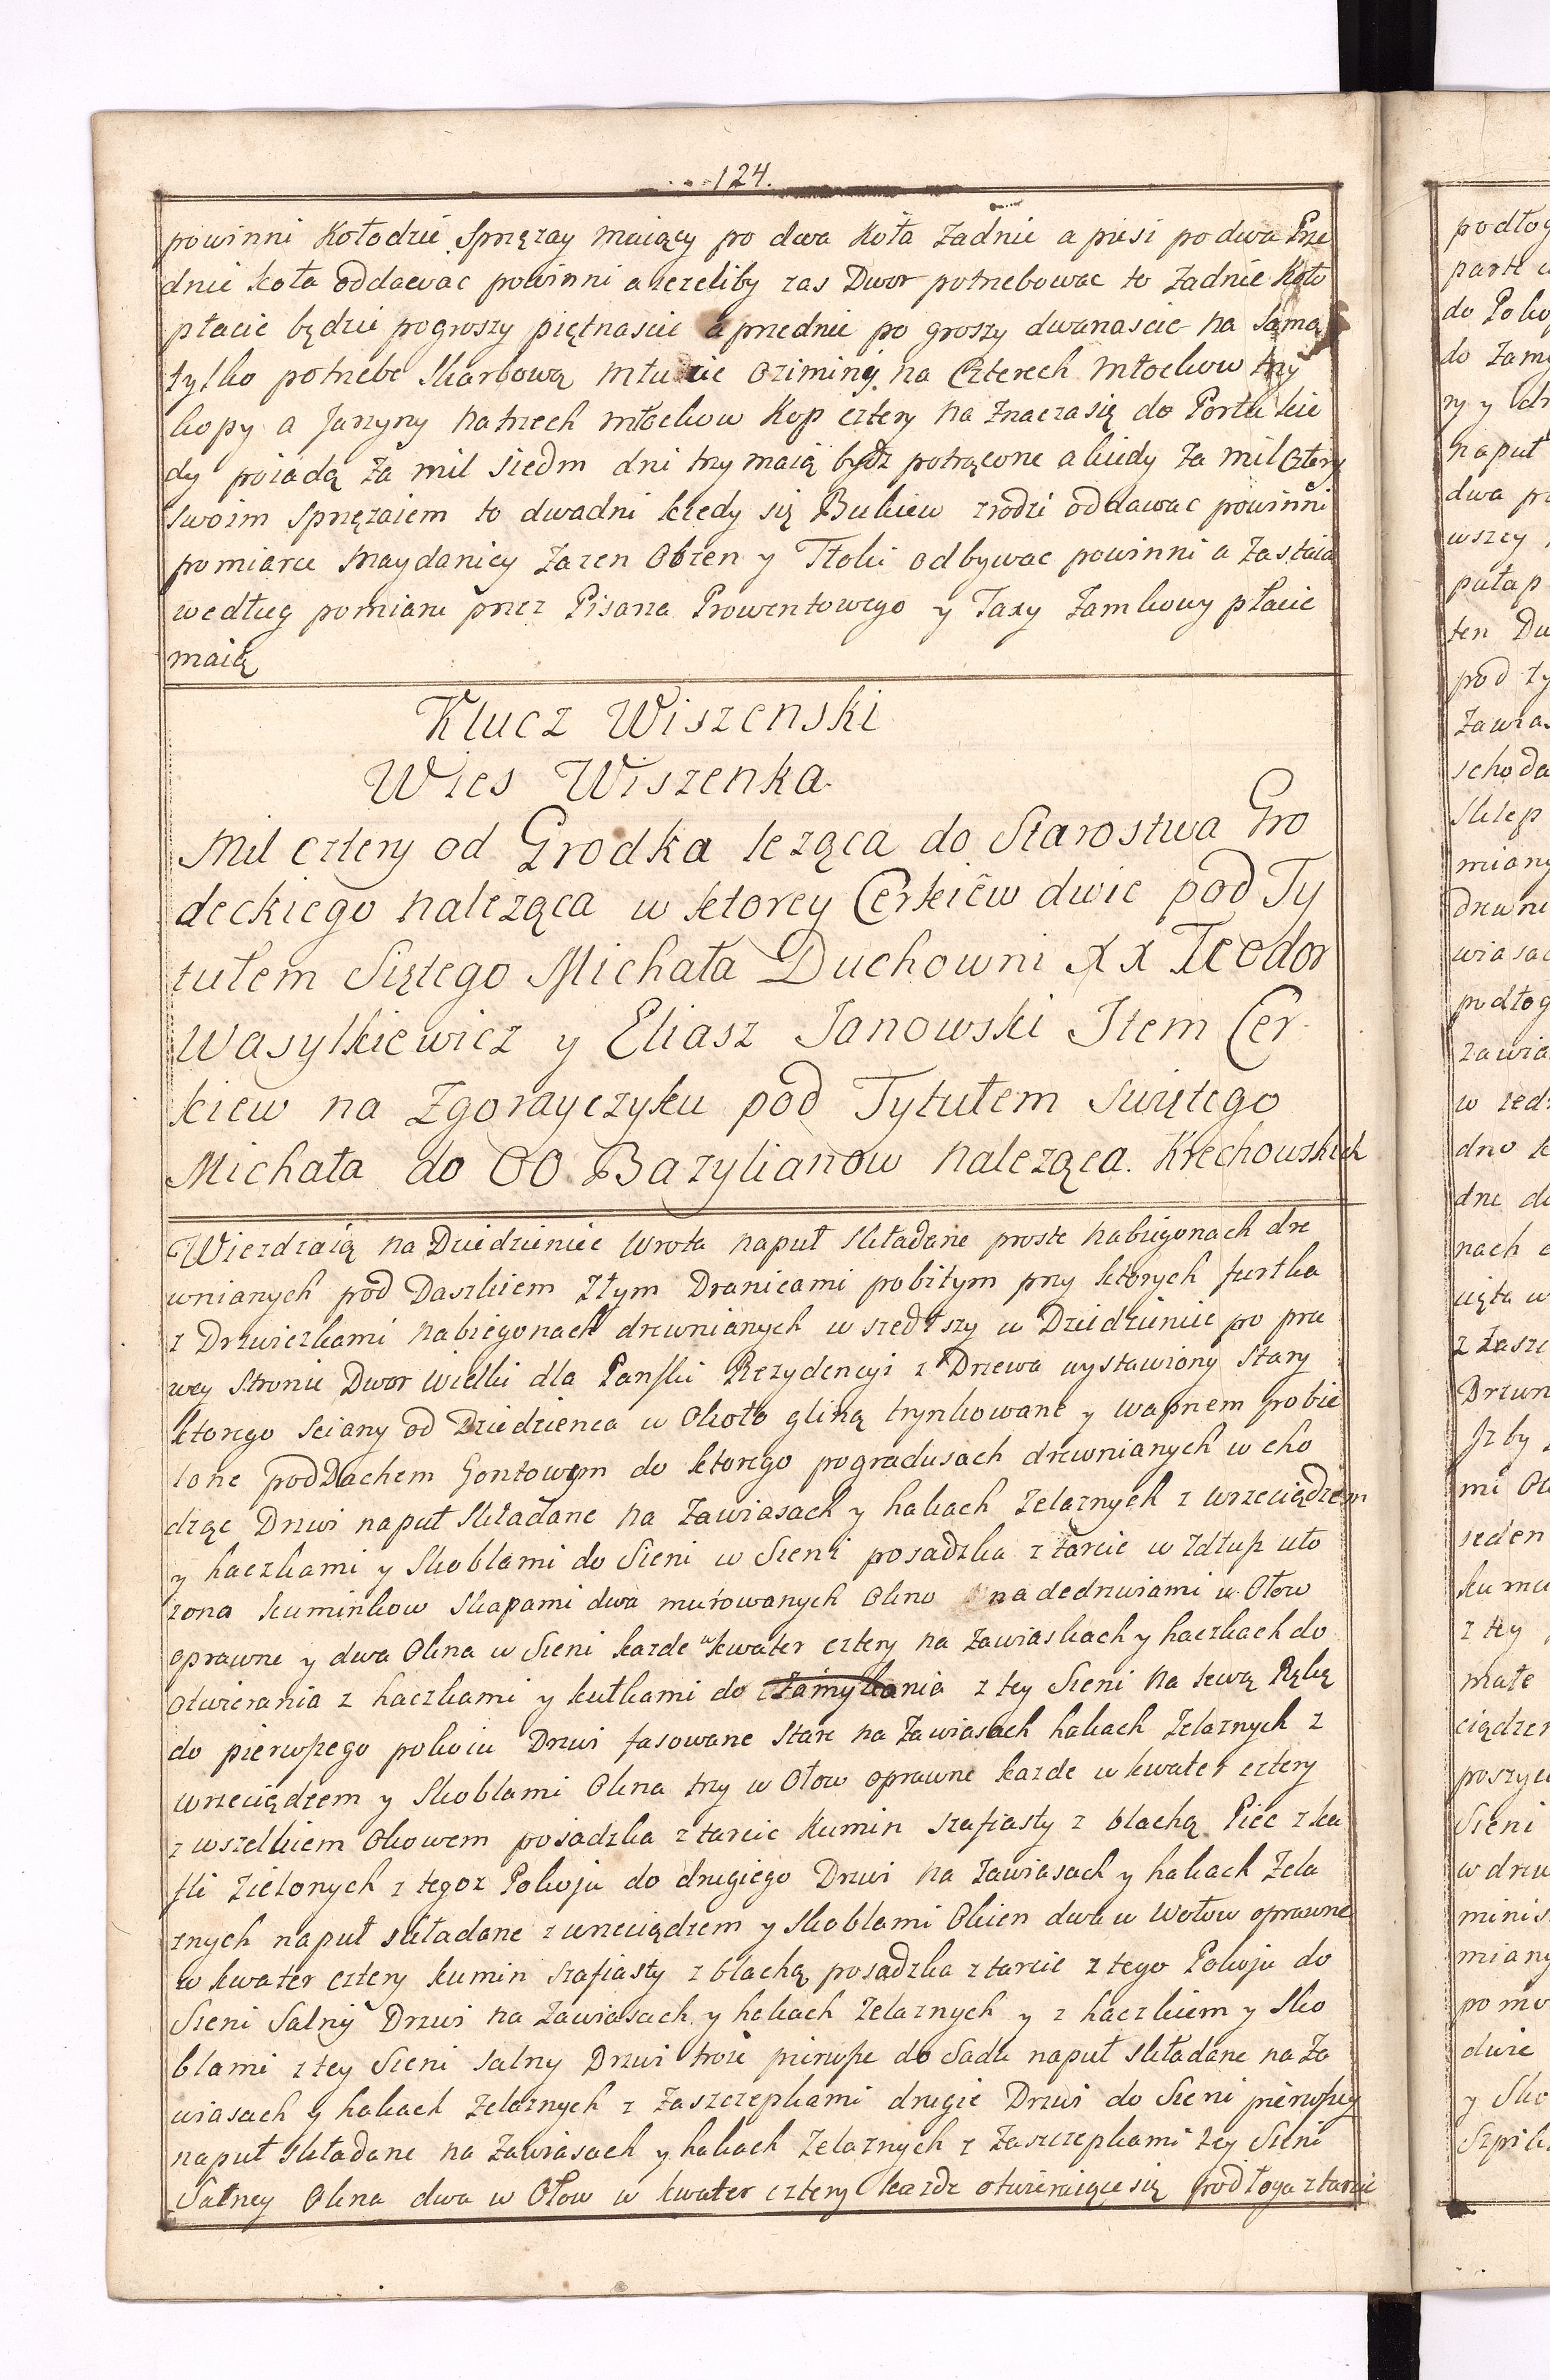 124.
powinni Kołodzie Sprzęzay maiący po dwa Koła Zadnie a piesi po dwa Prze
dnie koła oddawac powinni a iezeliby zas Dwor potrzebowac to Zadnie Koło
płacic będzie po groszy piętnascie a przednie po groszy dwanascie na Samą
tylko potrzebe Skarbową Młucic Oziminy na Czterech Młockow trzy
kopy a Jarzyny na trzech młockow Kop cztery na Znacza się do Portu kie
dy poiadą Za mil siedm dni trzy maią bydz potrącone a kiedy Za mil cztery
swoim Sprzęzaiem to dwa dni kiedy się Bukiew zrodzi oddawac powinni
pomiarce Maydanicy Zazen Obzen y Tłoki odbywac powinni a Zastaia
według pomiaru przez Pisarza Prowentowego y Taxy Zamkowy płacic
maią
Klucz Wiszenski
Wies Wiszenka.
Mil cztery od Grodka leząca do Starostwa Gro
deckiego naleząca w ktorey Cerkiew dwie pod Ty
tułem Siętego Michała Duchowni XX Teodor
Wasylkiewicz y Eliasz Janowski Item Cer-
kiew na Zgorzyczyku pod Tytułem Swiętego
Michała do OO Bazylianow naleząca. Krechowskich
Wiezdzaią na Dziedziniec Wrota naput składane proste na biegonach dre
wnianych pod Daszkiem Złym Dranicami pobitym przy ktorych furtka
z Drzwiczkami na biegonach drewnianych wszedłszy w Dziedziniec po pra
wey Stronie Dwor Wielki dla Panski Rezydencyi z Drzewa wystawiony Stary
ktorego sciany od Dziedzienca w Około gliną trynkowane y wapnem pobie
lone pod Dachem Gontowym do ktorego po gradusach drewnianych wcho
dząc Drzwi naput składane na Zawiasach y hakach zelaznych z wrzeciądzem
y haczkami y Skoblami do Sieni w Sieni posadzka z tarcic w Zdłuz uło
zona kuminkow Skapami dwa murowanych Okno nade drzwiami w Ołow
oprawne y dwa Okna w Sieni kazde w kwater cztery na Zawiaskach y haczkach do
Otwierania z haczkami y kutkami do Zamykania z tey Sieni na lewą Rękę
do pierwszego pokoiu Drzwi fasowane stare na Zawiasach hakach Zelaznych z
wrzeciądzem y Skoblami Okna trzy w Ołow oprawne kazde w kwater cztery
z wszelkiem Okowem posadzka z tarcic kumin szafiasty z blachą Piec z ka
fli Zielonych z tegoz Pokoju do drugiego Drzwi na Zawiasach y hakach Zela
znych naput składane z wrzeciądzem y Skoblami Okien dwa w Wołow oprawne
w kwater cztery kumin szafiasty z blachą posadzka z tarcic z tego Pokoju do
Sieni Salny Drzwi na Zawiasach y hakach Zelaznych y z haczkiem y Sko
blami z tey Sieni Salny Drzwi troie pierwsze do Sadu naput składane na Za
wiasach y hakach Zelaznych z Zaszczepkami drugie Drzwi do Sieni pierwszey
naput składane na Zawiasach y hakach Zelaznych z Zaszczepkami tey Sieni
Salney Okna dwa w Ołow w kwater cztery kazde otwieraiące się podłoga z tarcic